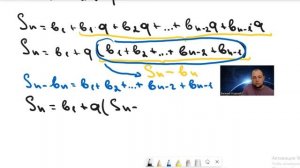 Sn = b1 + b1·q + b2q + ... + bn-2q + bn-1q
Sn = b1 + q(b1 + b2 + ... + bn-2 + bn-1
Sn - bn
Sn - bn = b1 + b2 + ... + bn-2 + bn-1
Sn = b1 + q(Sn -